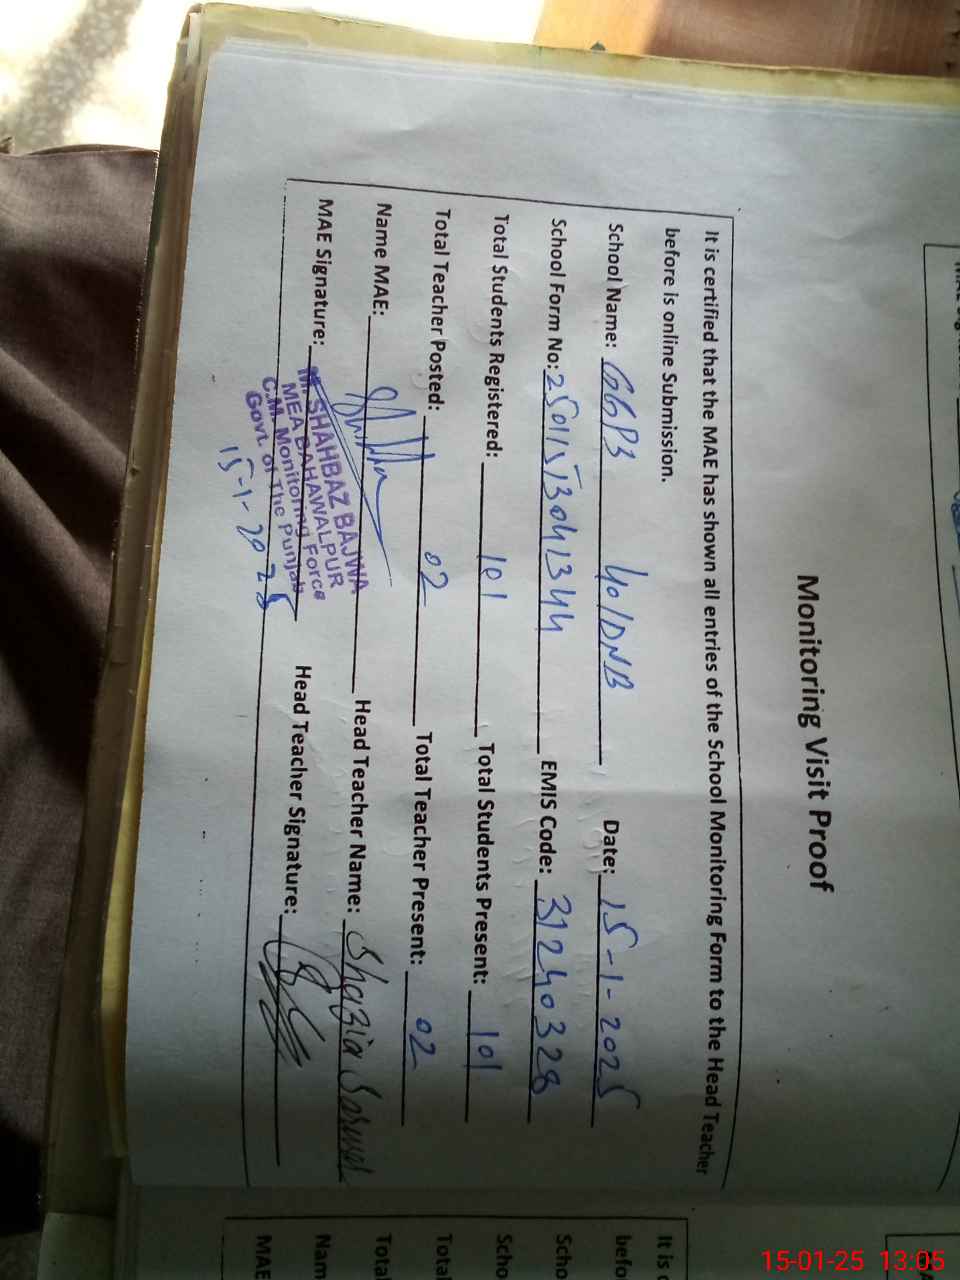 Monitoring Visit Proof
It is certified that the MAE has shown all entries of the School Monitoring Form to the Head Teacher
before is online Submission.
School Name: GGPS 40/DNB Date: 15-1-2025
School Form No: 25011513041344 EMIS Code: 31240328
Total Students Registered: 101 Total Students Present: 101
Total Teacher Posted: 02 Total Teacher Present: 02
Name MAE: Head Teacher Name: Shazia
MAE Signature: Head Teacher Signature:
Mr. SHAHBAZ BAJWA
MEA BAHAWALPUR
C.M. Monitoring Force
Govt. of The Punjab
15-1-2025
It is
befo
Scho
Scho
Total
Total
Nam
MAE
15-01-25 13:05